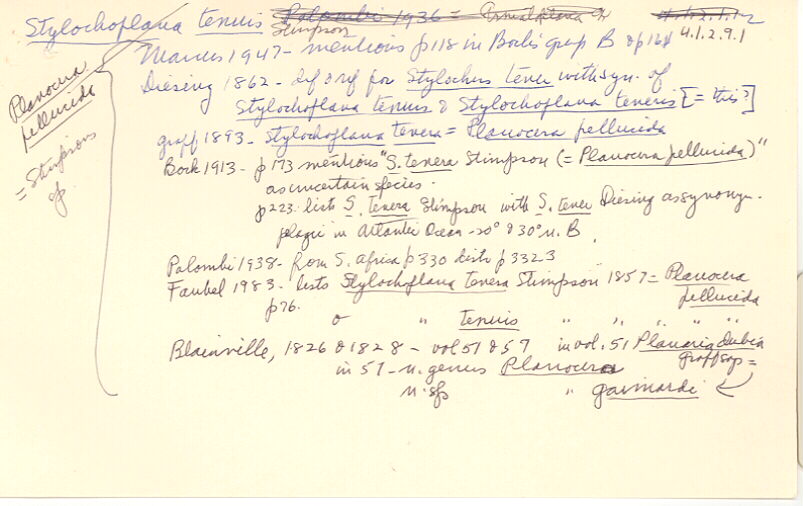 Stylochoplana tenuis Palombi 1936 = 4.1.2.1.12
Stimpson 4.1.2.9.1
Marcus 1947 - mentions p118 in Bock's group B & p 168
Diesing 1862 - dif & ref for Stylochus tener with syn. of
Stylochoplana tenuis & Stylochoplana teneris [= this?]
Planocera pellucida
= Stimpsons sp.
Graff 1893 - Stylochoplana tenera = Planocera pellucida
Bock 1913 - p173 mentions "S. tenera Stimpson (= Planocera pellucida)"
as uncertain species.
p223 lists S. tenera Stimpson with S. tener Diesing as synonym.
pelagic in Atlantic Ocean - 20° & 30° n. B.
Palombi 1938 - from S. africa p330 distr p332.3
Faubel 1983 - lists Stylochoplana tenera Stimpson 1857 = Planocera pellucida
p76.
o " tenuis " " " "
Blainville, 1826 & 1828 - vol 51 & 57 in vol. 51 Planaria dubia
Graff says =
in 57 - n. genus Planocera
n. sp. " gaimardi